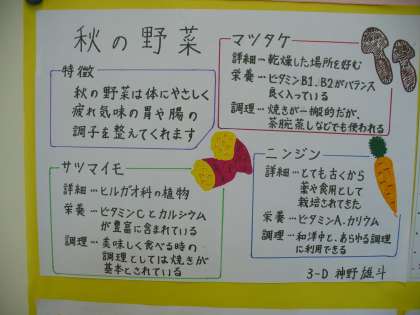 秋の野菜
特徴
秋の野菜は体にやさしく
疲れ気味の胃や腸の
調子を整えてくれます
マツタケ
詳細…乾燥した場所を好む
栄養…ビタミンB1、B2がバランス
良く入っている
調理…焼きが一般的だが、
茶腕蒸しなどでも使われる
サツマイモ
詳細…ヒルガオ科の植物
栄養…ビタミンCとカルシウム
が豊富に含まれている
調理…美味しく食べる時の
調理としては焼きが
基本とされている
ニンジン
詳細…とても古くから
薬や食用として
栽培されてきた
栄養…ビタミンA、カリウム
調理…和洋中と、あらゆる調理
に利用できる
3-D 神野雄斗